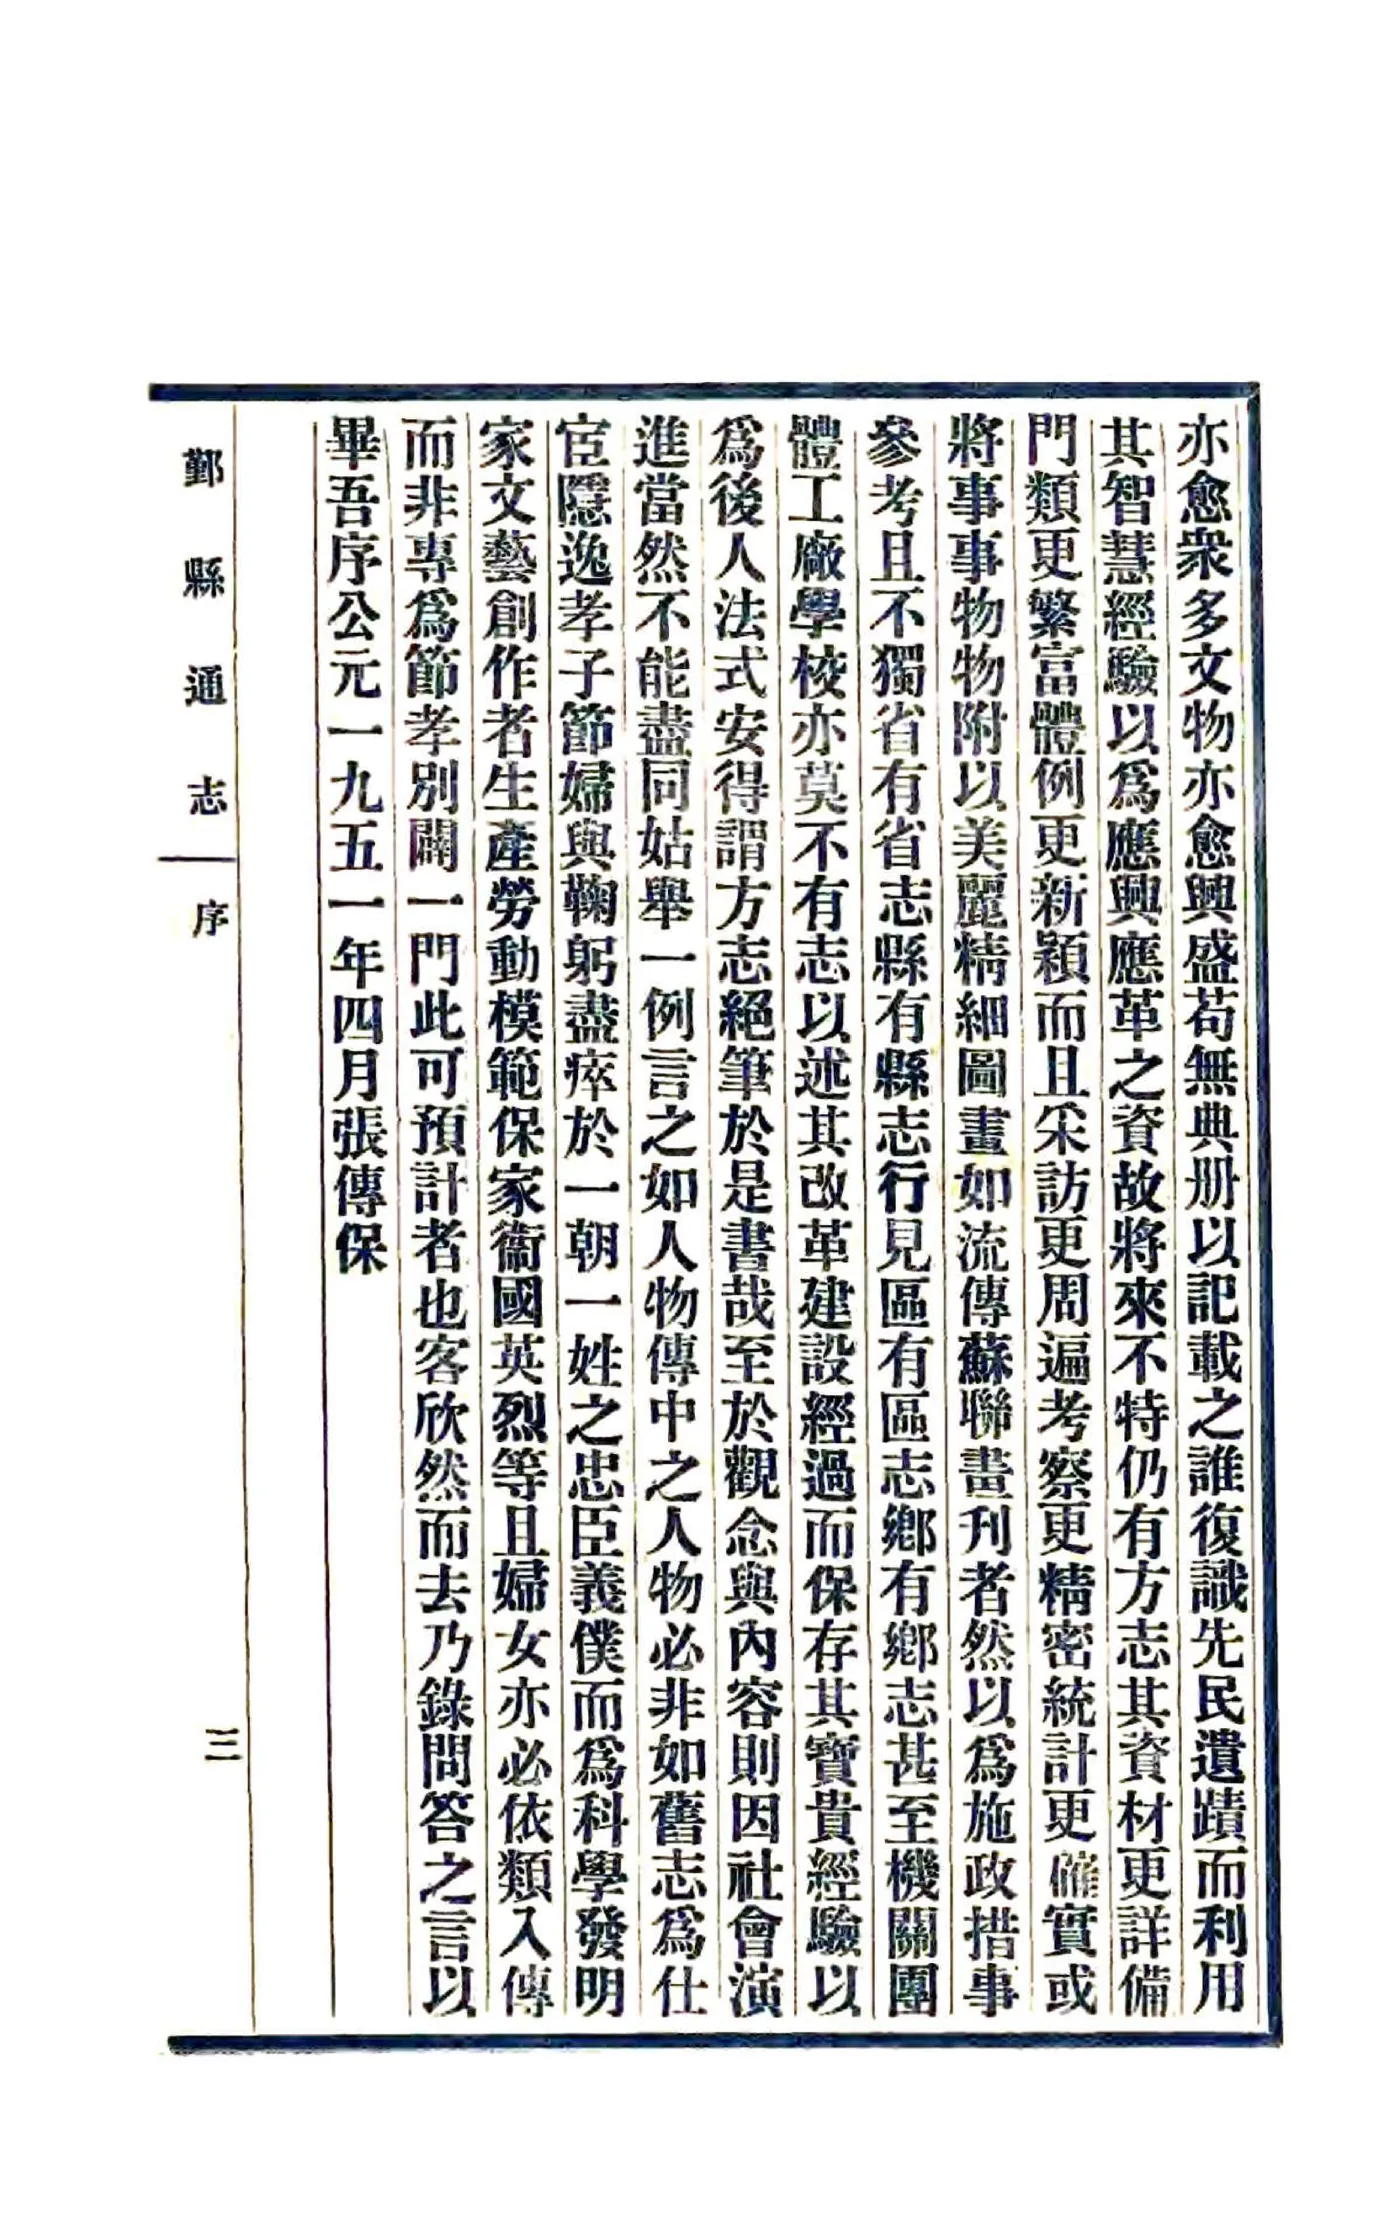 亦愈衆多文物亦愈興盛苟無典册以記載之誰復識先民遺蹟而利用
其智慧經驗以爲應興應革之資故將來不特仍有方志其資材更詳備
門類更繁富體例更新穎而且采訪更周遍考察更精密統計更確實或
將事事物物附以美麗精細圖畫如流傳蘇聯畫刊者然以爲施政措事
參考且不獨省有省志縣有縣志行見區有區志鄉有鄉志甚至機關團
體工廠學校亦莫不有志以述其改革建設經過而保存其寶貴經驗以
爲後人法式安得謂方志絕筆於是書哉至於觀念與內容則因社會演
進當然不能盡同姑舉一例言之如人物傳中之人物必非如舊志爲仕
宦隱逸孝子節婦與鞠躬盡瘁於一朝一姓之忠臣義僕而爲科學發明
家文藝創作者生產勞動模範保家衞國英烈等且婦女亦必依類入傳
而非專爲節孝別闢一門此可預計者也客欣然而去乃錄問答之言以
畢吾序公元一九五一年四月張傳保
鄞縣通志 序 三